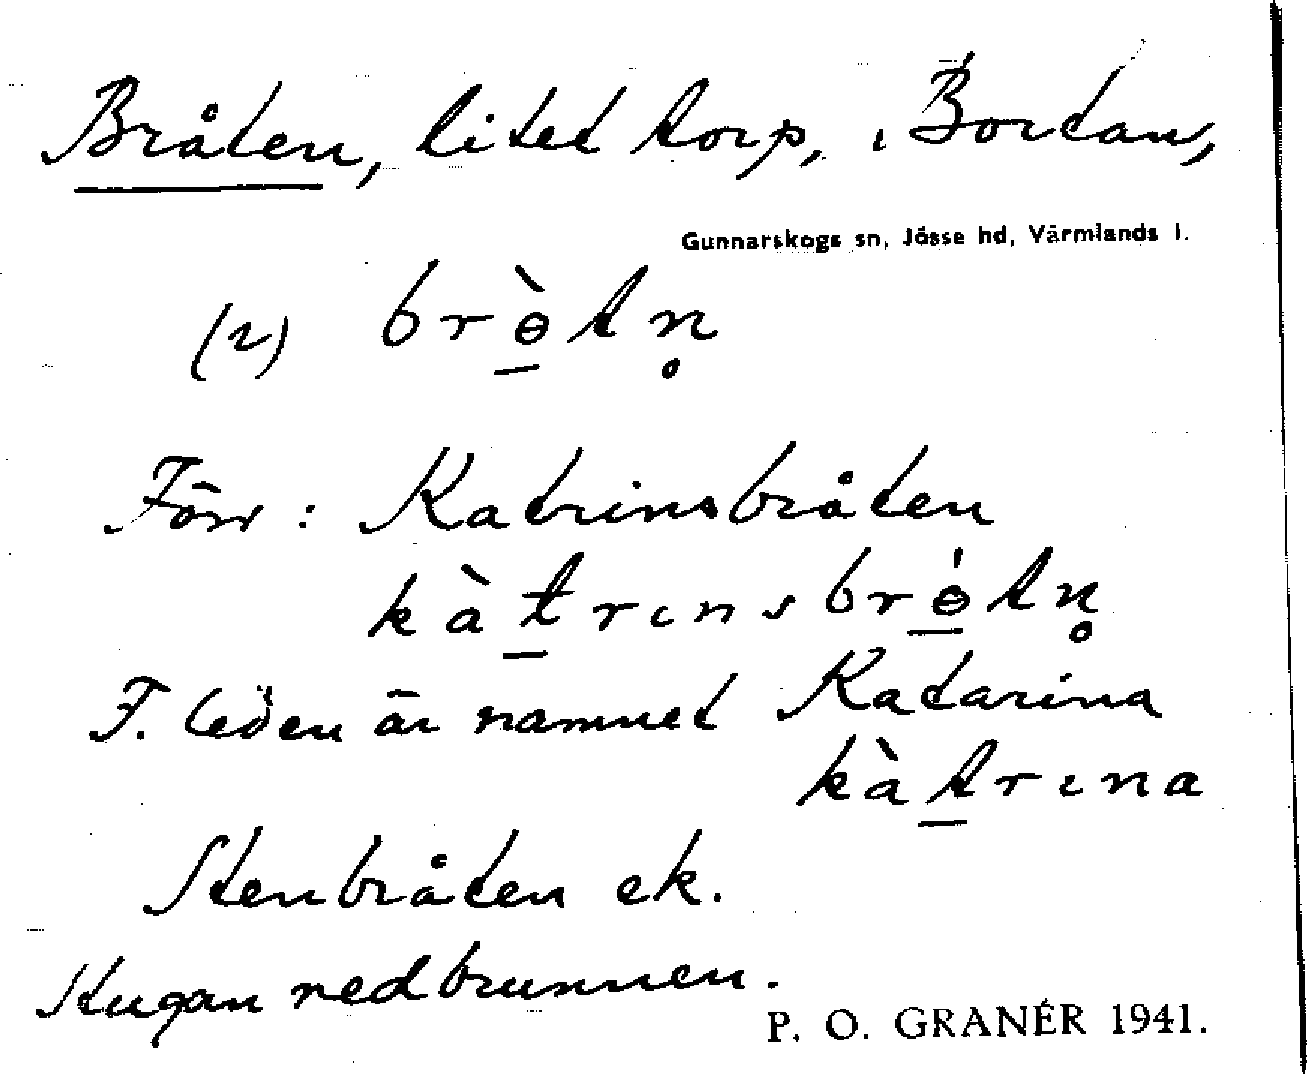 Bråten, litet torp, i Bortan,
Gunnarskogs sn, Jösse hd, Värmlands l.
(2) brɵ̱̀tn̥
Förr: Katrinsbråten
kàṯrɩnsbrɵ̱́tn̥
F. leden är namnet Katarina
kàṯrɩna
Stenbråten ek.
Stugan nedbrunnen.
P. O. GRANÉR 1941.